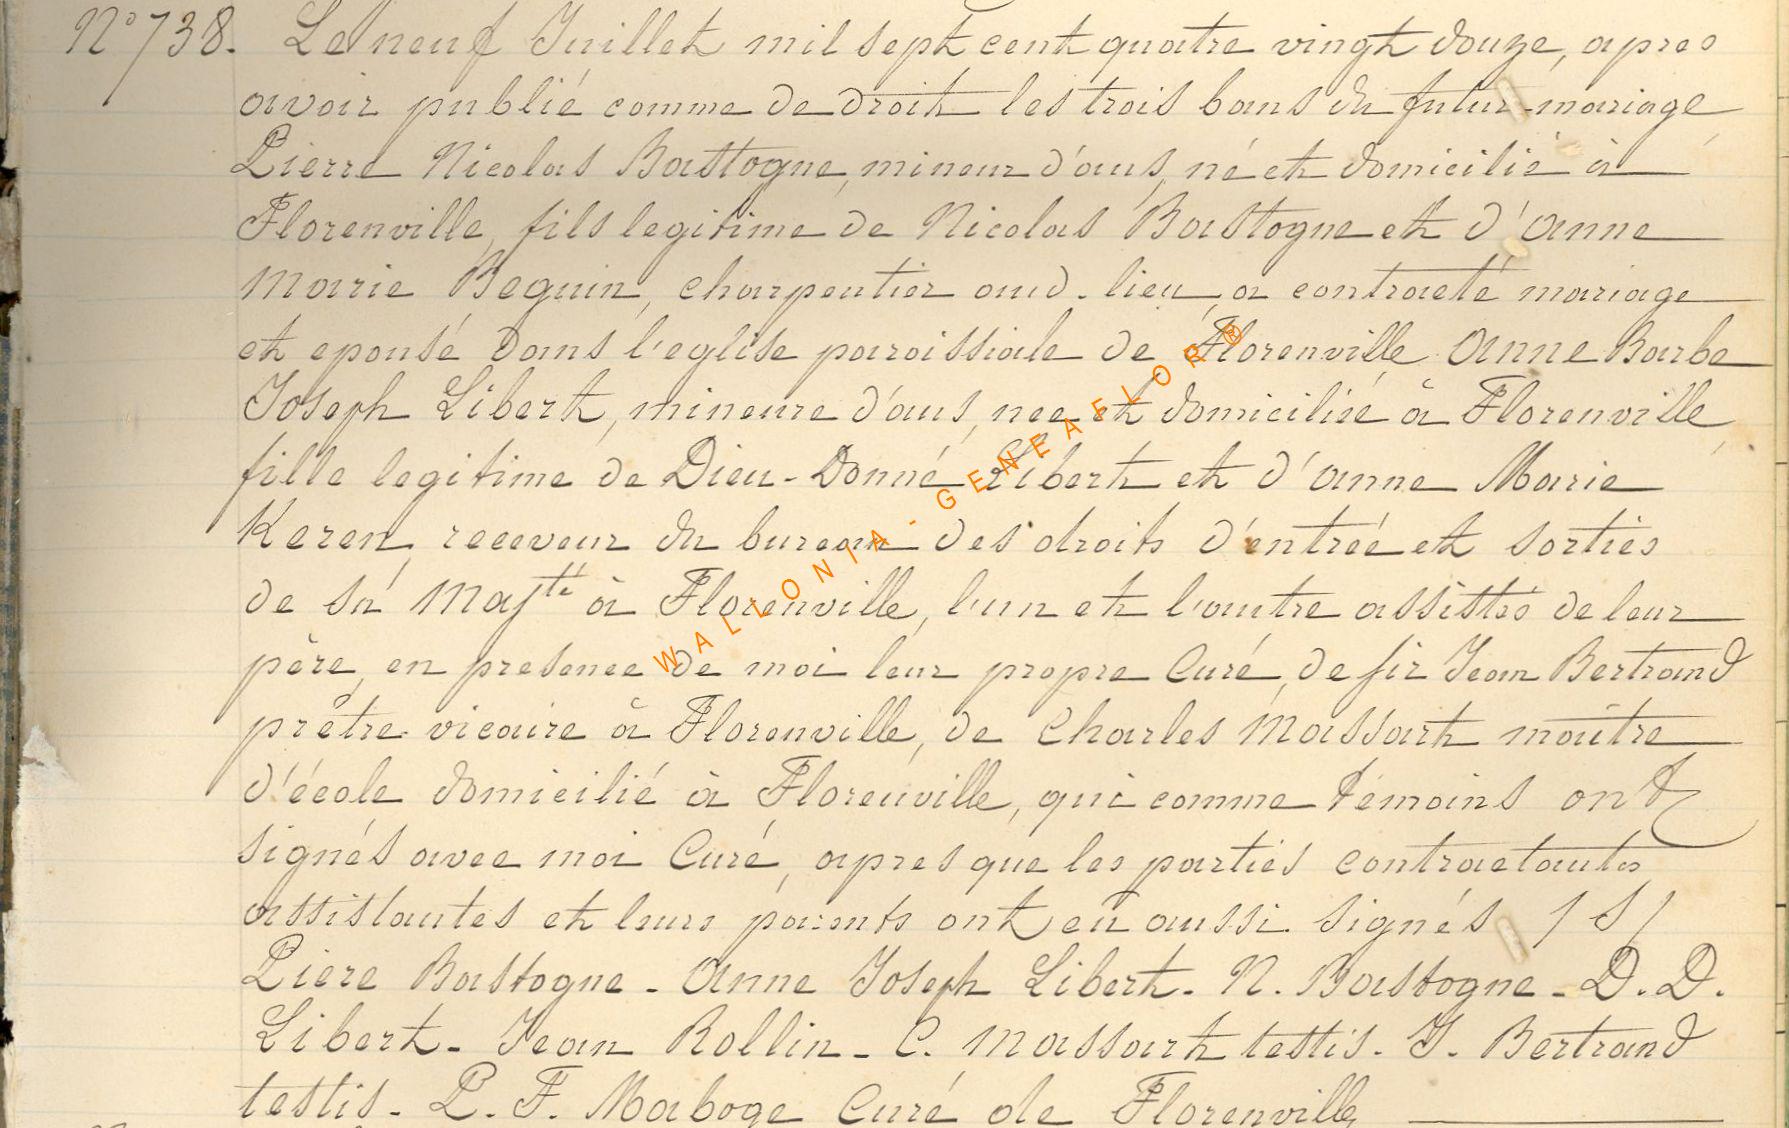 N° 738. Le neuf Juillet mil sept cent quatre vingt douze, apres
avoir publié comme de droit les trois bans du futur mariage
Pierre Nicolas Bastogne, mineur d'ans, né et domicilié à
Florenville, fils legitime de Nicolas Bastogne et d'Anne
Marie Beguin, charpentier aud. lieu, a contracté mariage
et epousé dans l'eglise paroissiale de Florenville Anne Barbe
Joseph Libert, mineure d'ans, nee et domiciliée à Florenville
fille legitime de Dieu-Donné Libert et d'Anne Marie
Keren, receveur du bureau des droits d'entrée et sorties
de sa Majté à Florenville, l'un et l'autre assistés de leur
père, en presence de moi leur propre Curé, de sir Jean Bertrand
prêtre vicaire à Florenville, de Charles Massart maître
d'école domicilié à Florenville, qui comme témoins ont
signés avec moi Curé, apres que les parties contractantes
assistantes et leurs parents ont eu aussi signés /S/
Piere Bastogne - Anne Joseph Libert - N. Bastogne - D. D.
Libert - Jean Rollin - C. Massart testis - J. Bertrand
testis - P. F. Maboge Curé de Florenville
WALLONIA - GENEAFLOR®